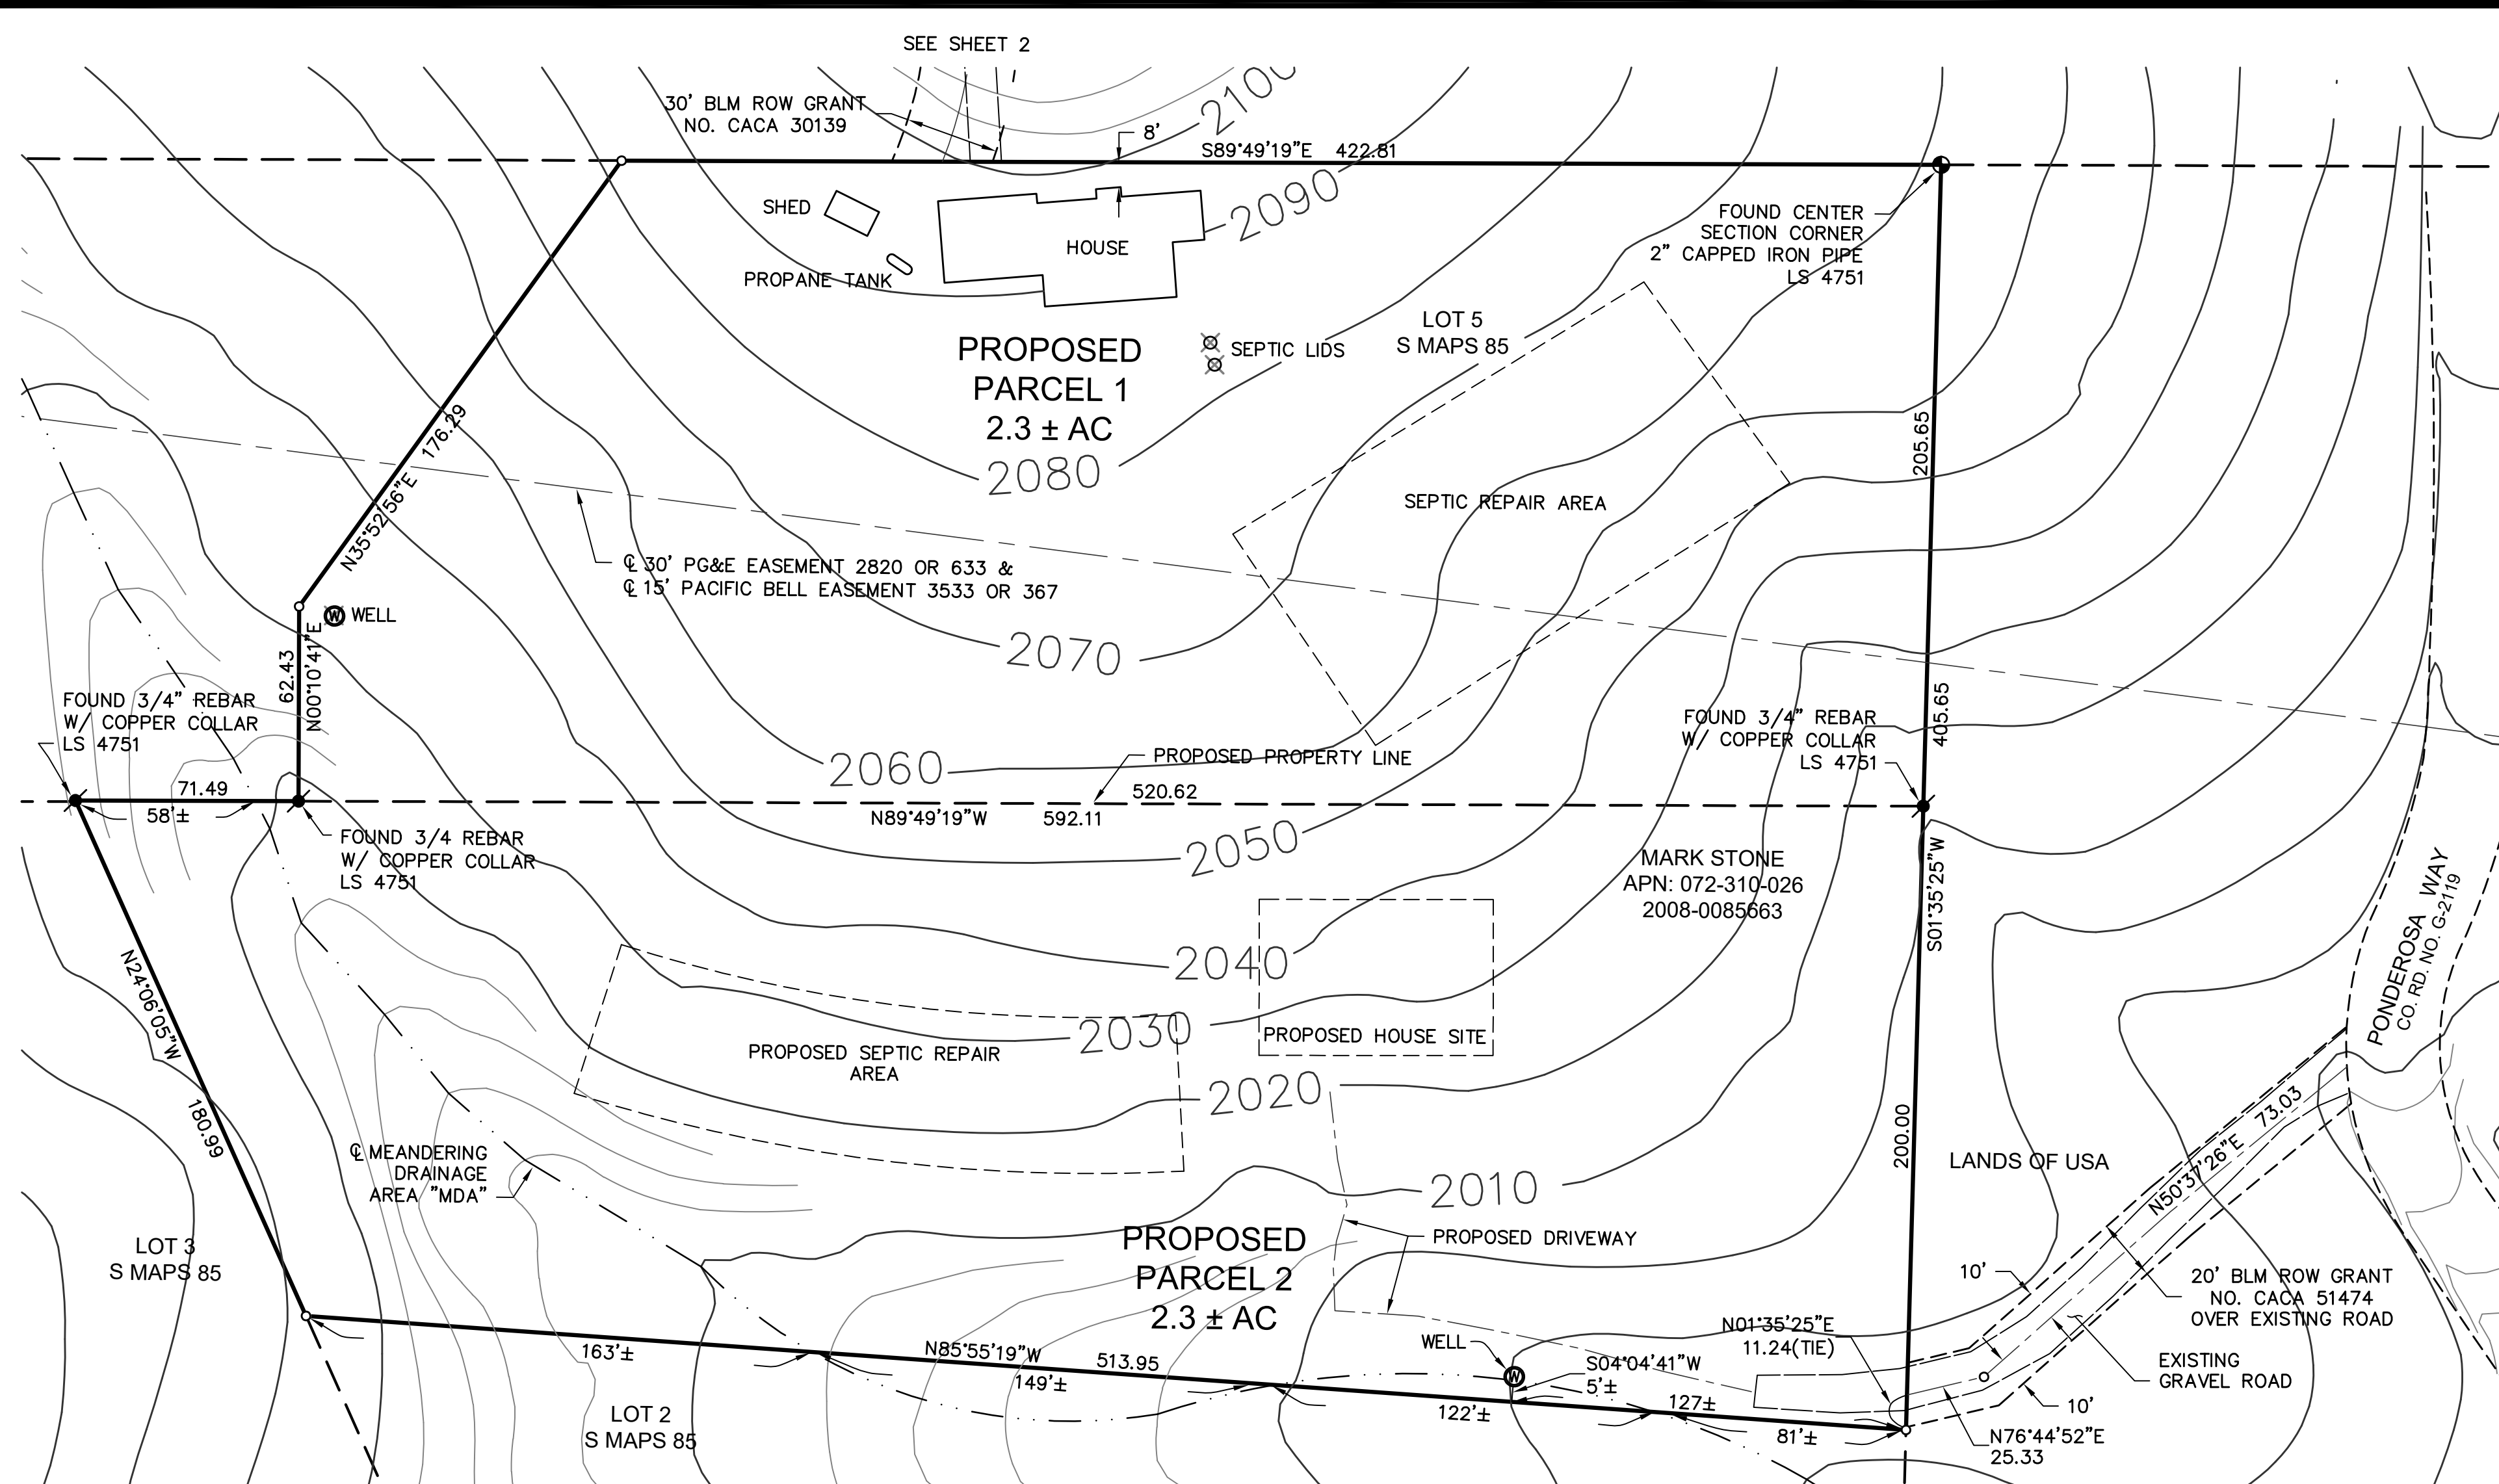 SEE SHEET 2
30' BLM ROW GRANT
NO. CACA 30139
8'
2100
S89°49'19"E 422.81
2090
SHED
HOUSE
PROPANE TANK
FOUND CENTER
SECTION CORNER
2" CAPPED IRON PIPE
LS 4751
LOT 5
S MAPS 85
PROPOSED
PARCEL 1
2.3 ± AC
SEPTIC LIDS
N35°52'56"E 176.29
205.65
2080
SEPTIC REPAIR AREA
℄ 30' PG&E EASEMENT 2820 OR 633 &
℄ 15' PACIFIC BELL EASEMENT 3533 OR 367
W WELL
62.43
N00°10'41"E
2070
FOUND 3/4" REBAR
W/ COPPER COLLAR
LS 4751
405.65
FOUND 3/4" REBAR
W/ COPPER COLLAR
LS 4751
2060
PROPOSED PROPERTY LINE
71.49
58'±
520.62
N89°49'19"W 592.11
FOUND 3/4 REBAR
W/ COPPER COLLAR
LS 4751
2050
MARK STONE
APN: 072-310-026
2008-0085663
S01°35'25"W
PONDEROSA WAY
CO. RD. NO. G-2119
N24°06'05"W
180.99
2040
2030
PROPOSED HOUSE SITE
PROPOSED SEPTIC REPAIR
AREA
2020
200.00
N50°37'26"E 73.03
℄ MEANDERING
DRAINAGE
AREA "MDA"
LANDS OF USA
2010
LOT 3
S MAPS 85
PROPOSED
PARCEL 2
2.3 ± AC
PROPOSED DRIVEWAY
10'
20' BLM ROW GRANT
NO. CACA 51474
OVER EXISTING ROAD
N01°35'25"E
11.24(TIE)
WELL
W
163'±
N85°55'19"W 513.95
149'±
S04°04'41"W
5'±
EXISTING
GRAVEL ROAD
122'±
127±
81'±
10'
LOT 2
S MAPS 85
N76°44'52"E
25.33